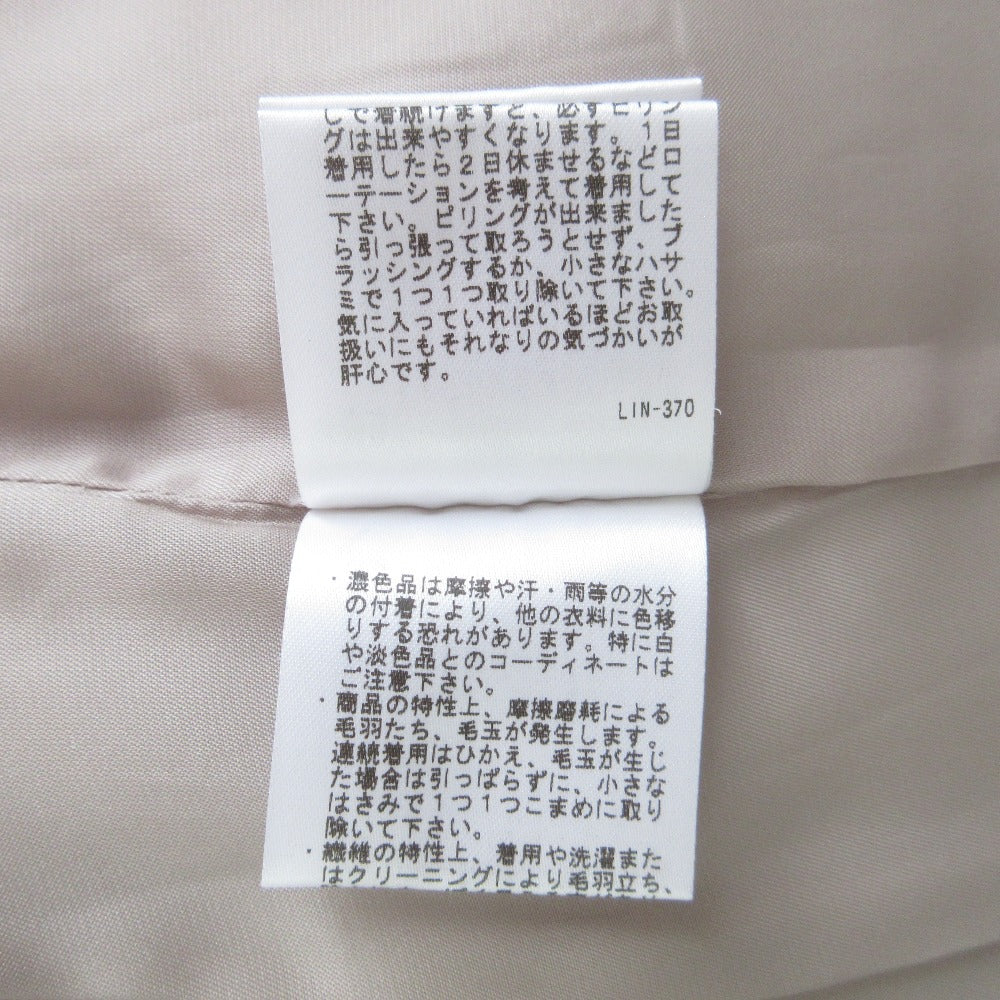 しでは着続けますと、必ずピリン
グは出来やすくなります。1日
着用したら2日休ませるなどロ
ーテーションを考えて着用して
下さい。ピリングが出来ました
ら引っ張って取ろうとせず、ブ
ラッシングするか、小さなハサ
ミで1つ1つ取り除いて下さい。
気に入っていればいるほどお取
扱いにもそれなりの気づかいが
肝心です。
LIN-370
・濃色品は摩擦や汗・雨等の水分
の付着により、他の衣料に色移
りする恐れがあります。特に白
や淡色品とのコーディネートは
ご注意下さい。
・商品の特性上、摩擦磨耗による
毛羽たち、毛玉が発生します。
連続着用はひかえ、毛玉が生じ
た場合は引っぱらずに、小さな
はさみで1つ1つこまめに取り
除いて下さい。
・繊維の特性上、着用や洗濯また
はクリーニングにより毛羽立ち、